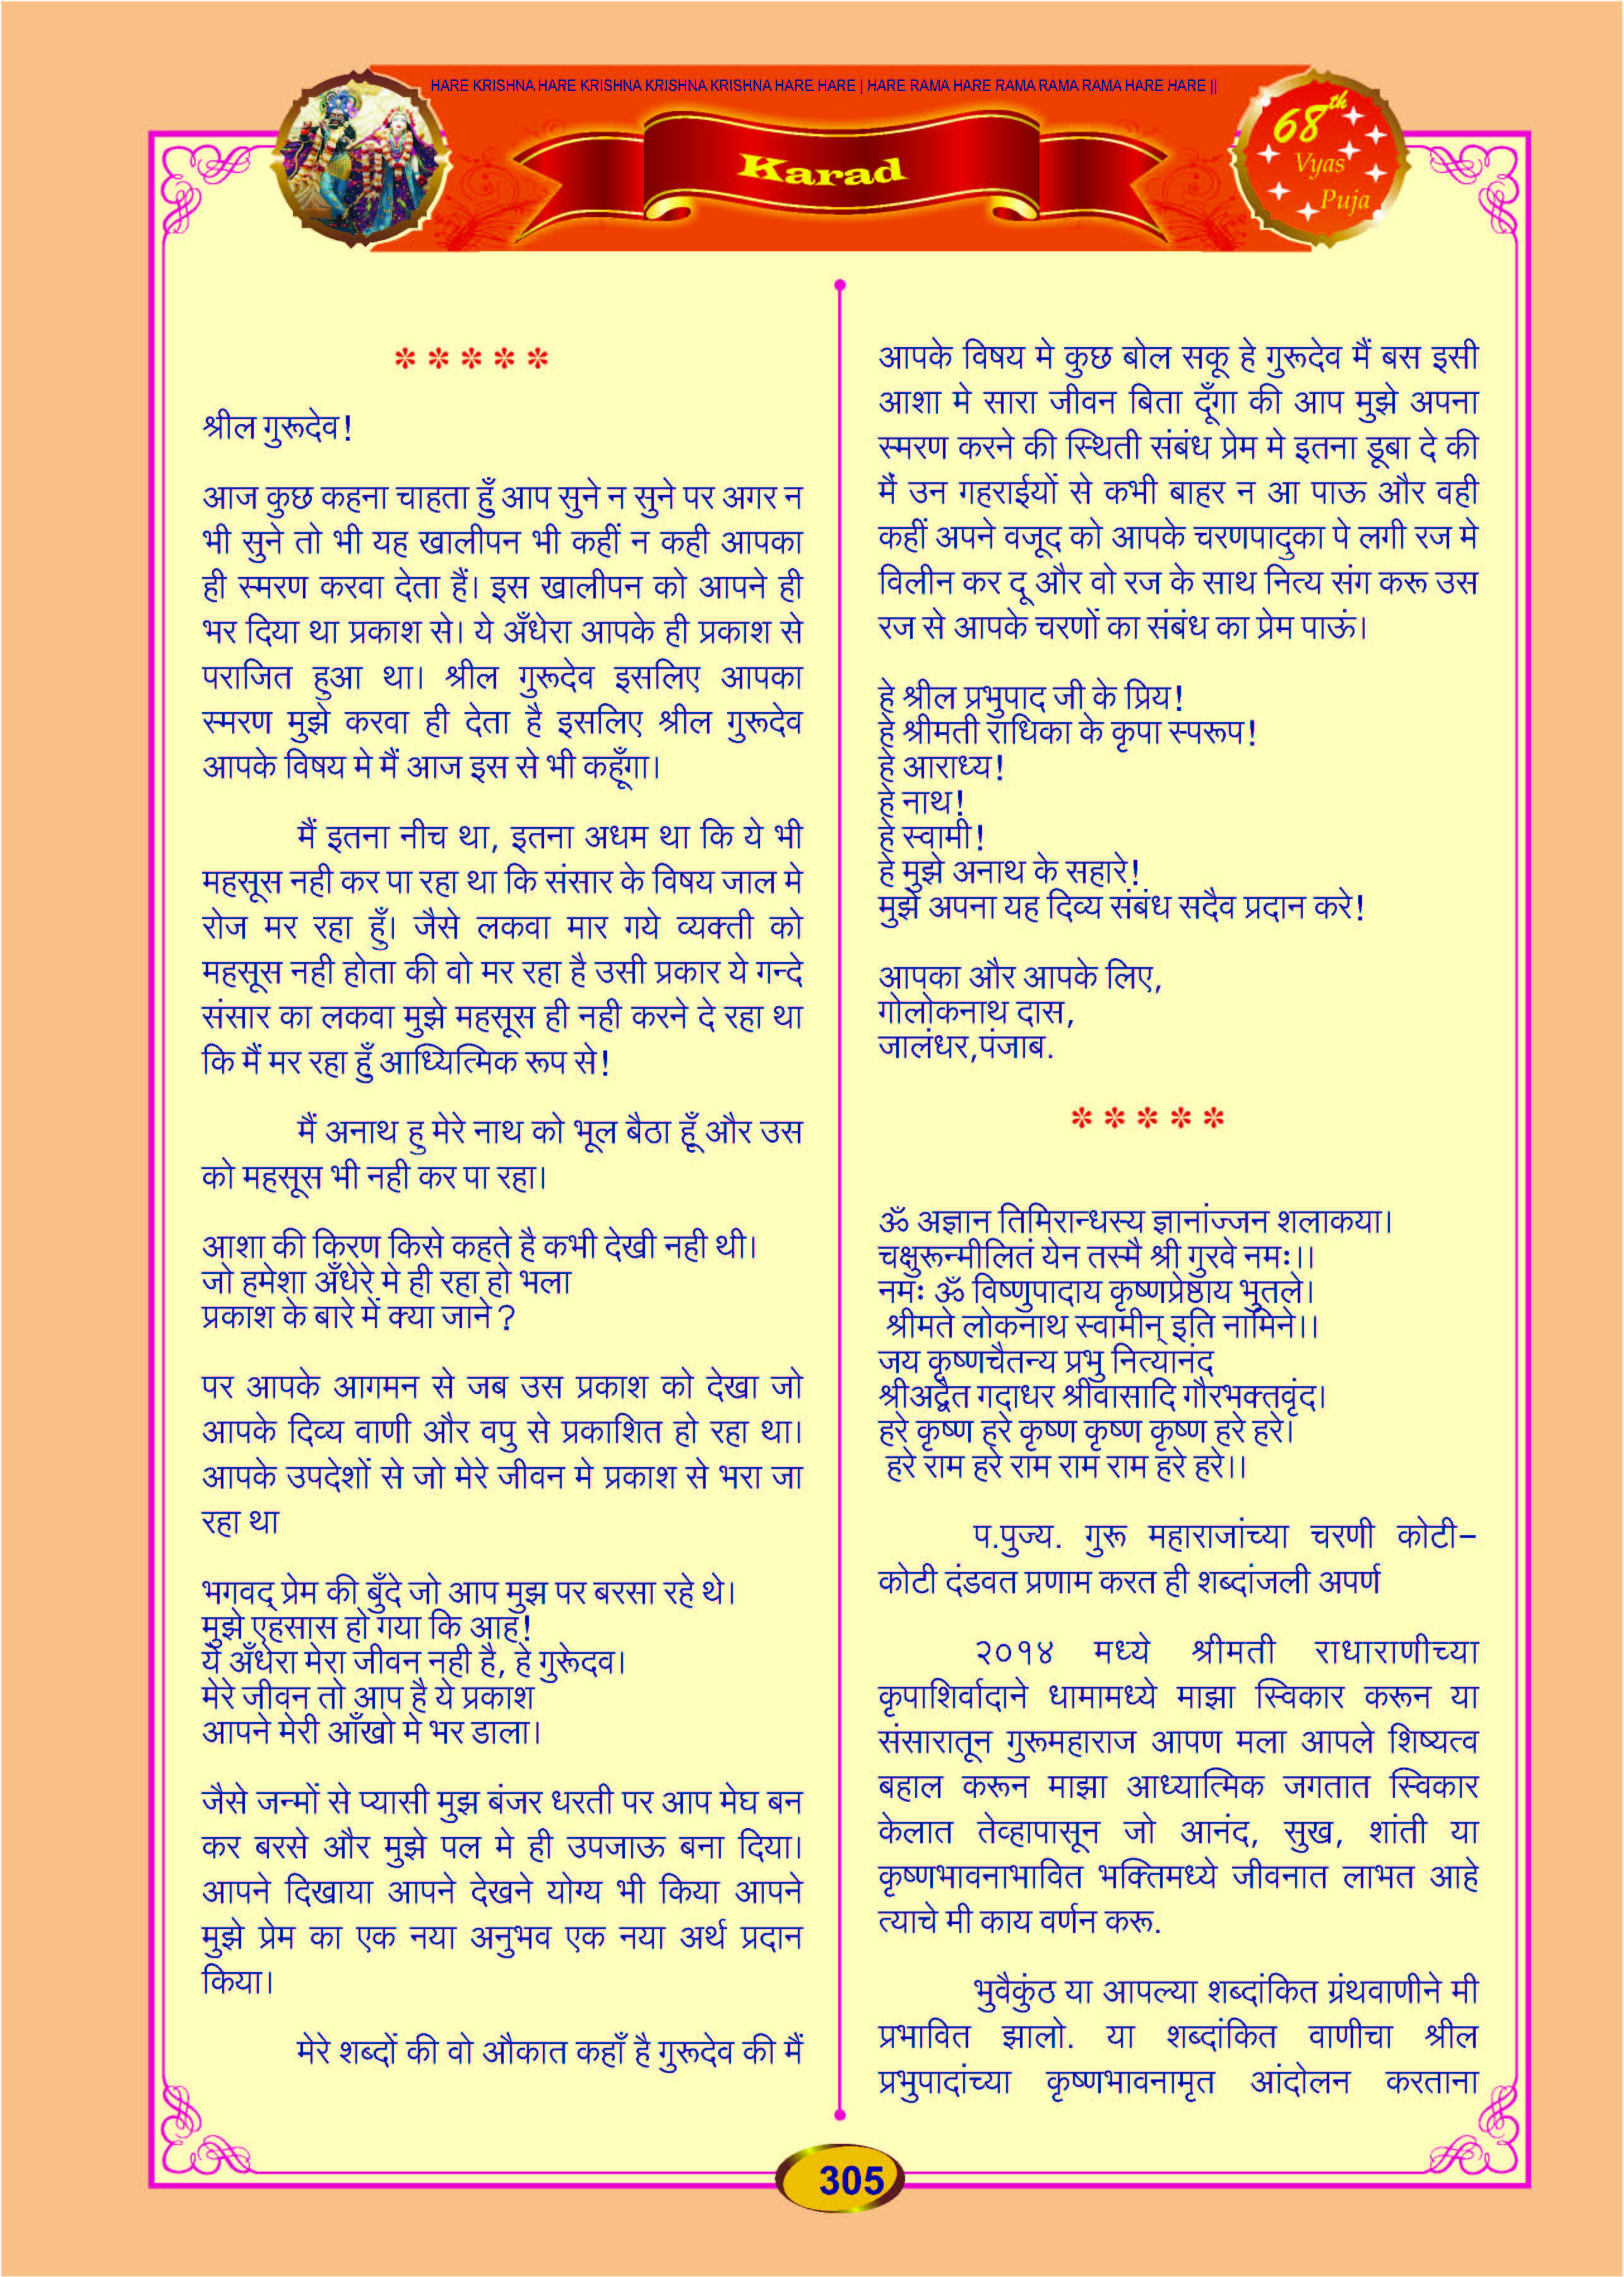 HARE KRISHNA HARE KRISHNA KRISHNA KRISHNA HARE HARE | HARE RAMA HARE RAMA RAMA RAMA HARE HARE ||
Karad
68th
Vyas
Puja
* * * * *
श्रील गुरूदेव!
आज कुछ कहना चाहता हुँ आप सुने न सुने पर अगर न
भी सुने तो भी यह खालीपन भी कहीं न कही आपका
ही स्मरण करवा देता हैं। इस खालीपन को आपने ही
भर दिया था प्रकाश से। ये अँधेरा आपके ही प्रकाश से
पराजित हुआ था। श्रील गुरूदेव इसलिए आपका
स्मरण मुझे करवा ही देता है इसलिए श्रील गुरूदेव
आपके विषय मे मैं आज इस से भी कहूँगा।
मैं इतना नीच था, इतना अधम था कि ये भी
महसूस नही कर पा रहा था कि संसार के विषय जाल मे
रोज मर रहा हुँ। जैसे लकवा मार गये व्यक्ती को
महसूस नही होता की वो मर रहा है उसी प्रकार ये गन्दे
संसार का लकवा मुझे महसूस ही नही करने दे रहा था
कि मैं मर रहा हुँ आध्यित्मिक रूप से!
मैं अनाथ हु मेरे नाथ को भूल बैठा हूँ और उस
को महसूस भी नही कर पा रहा।
आशा की किरण किसे कहते है कभी देखी नही थी।
जो हमेशा अँधेरे मे ही रहा हो भला
प्रकाश के बारे में क्या जाने ?
पर आपके आगमन से जब उस प्रकाश को देखा जो
आपके दिव्य वाणी और वपु से प्रकाशित हो रहा था।
आपके उपदेशों से जो मेरे जीवन मे प्रकाश से भरा जा
रहा था
भगवद् प्रेम की बुँदे जो आप मुझ पर बरसा रहे थे।
मुझे एहसास हो गया कि आह!
ये अँधेरा मेरा जीवन नही है, हे गुरूेदव।
मेरे जीवन तो आप है ये प्रकाश
आपने मेरी आँखो मे भर डाला।
जैसे जन्मों से प्यासी मुझ बंजर धरती पर आप मेघ बन
कर बरसे और मुझे पल मे ही उपजाऊ बना दिया।
आपने दिखाया आपने देखने योग्य भी किया आपने
मुझे प्रेम का एक नया अनुभव एक नया अर्थ प्रदान
किया।
मेरे शब्दों की वो औकात कहाँ है गुरूदेव की मैं
आपके विषय मे कुछ बोल सकू हे गुरूदेव मैं बस इसी
आशा मे सारा जीवन बिता दूँगा की आप मुझे अपना
स्मरण करने की स्थिती संबंध प्रेम मे इतना डूबा दे की
मैं उन गहराईयों से कभी बाहर न आ पाऊ और वही
कहीं अपने वजूद को आपके चरणपादुका पे लगी रज मे
विलीन कर दू और वो रज के साथ नित्य संग करू उस
रज से आपके चरणों का संबंध का प्रेम पाऊं।
हे श्रील प्रभुपाद जी के प्रिय!
हे श्रीमती राधिका के कृपा स्परूप!
हे आराध्य!
हे नाथ!
हे स्वामी!
हे मुझे अनाथ के सहारे!
मुझे अपना यह दिव्य संबंध सदैव प्रदान करे!
आपका और आपके लिए,
गोलोकनाथ दास,
जालंधर,पंजाब.
* * * * *
ॐ अज्ञान तिमिरान्धस्य ज्ञानांज्जन शलाकया।
चक्षुरून्मीलितं येन तस्मै श्री गुरवे नमः।।
नमः ॐ विष्णुपादाय कृष्णप्रेष्ठाय भुतले।
श्रीमते लोकनाथ स्वामीन् इति नामिने।।
जय कृष्णचैतन्य प्रभु नित्यानंद
श्रीअद्वैत गदाधर श्रीवासादि गौरभक्तवृंद।
हरे कृष्ण हरे कृष्ण कृष्ण कृष्ण हरे हरे।
हरे राम हरे राम राम राम हरे हरे।।
प.पुज्य. गुरू महाराजांच्या चरणी कोटी–
कोटी दंडवत प्रणाम करत ही शब्दांजली अपर्ण
२०१४ मध्ये श्रीमती राधाराणीच्या
कृपाशिर्वादाने धामामध्ये माझा स्विकार करून या
संसारातून गुरूमहाराज आपण मला आपले शिष्यत्व
बहाल करून माझा आध्यात्मिक जगतात स्विकार
केलात तेव्हापासून जो आनंद, सुख, शांती या
कृष्णभावनाभावित भक्तिमध्ये जीवनात लाभत आहे
त्याचे मी काय वर्णन करू.
भुवैकुंठ या आपल्या शब्दांकित ग्रंथवाणीने मी
प्रभावित झालो. या शब्दांकित वाणीचा श्रील
प्रभुपादांच्या कृष्णभावनामृत आंदोलन करताना
305